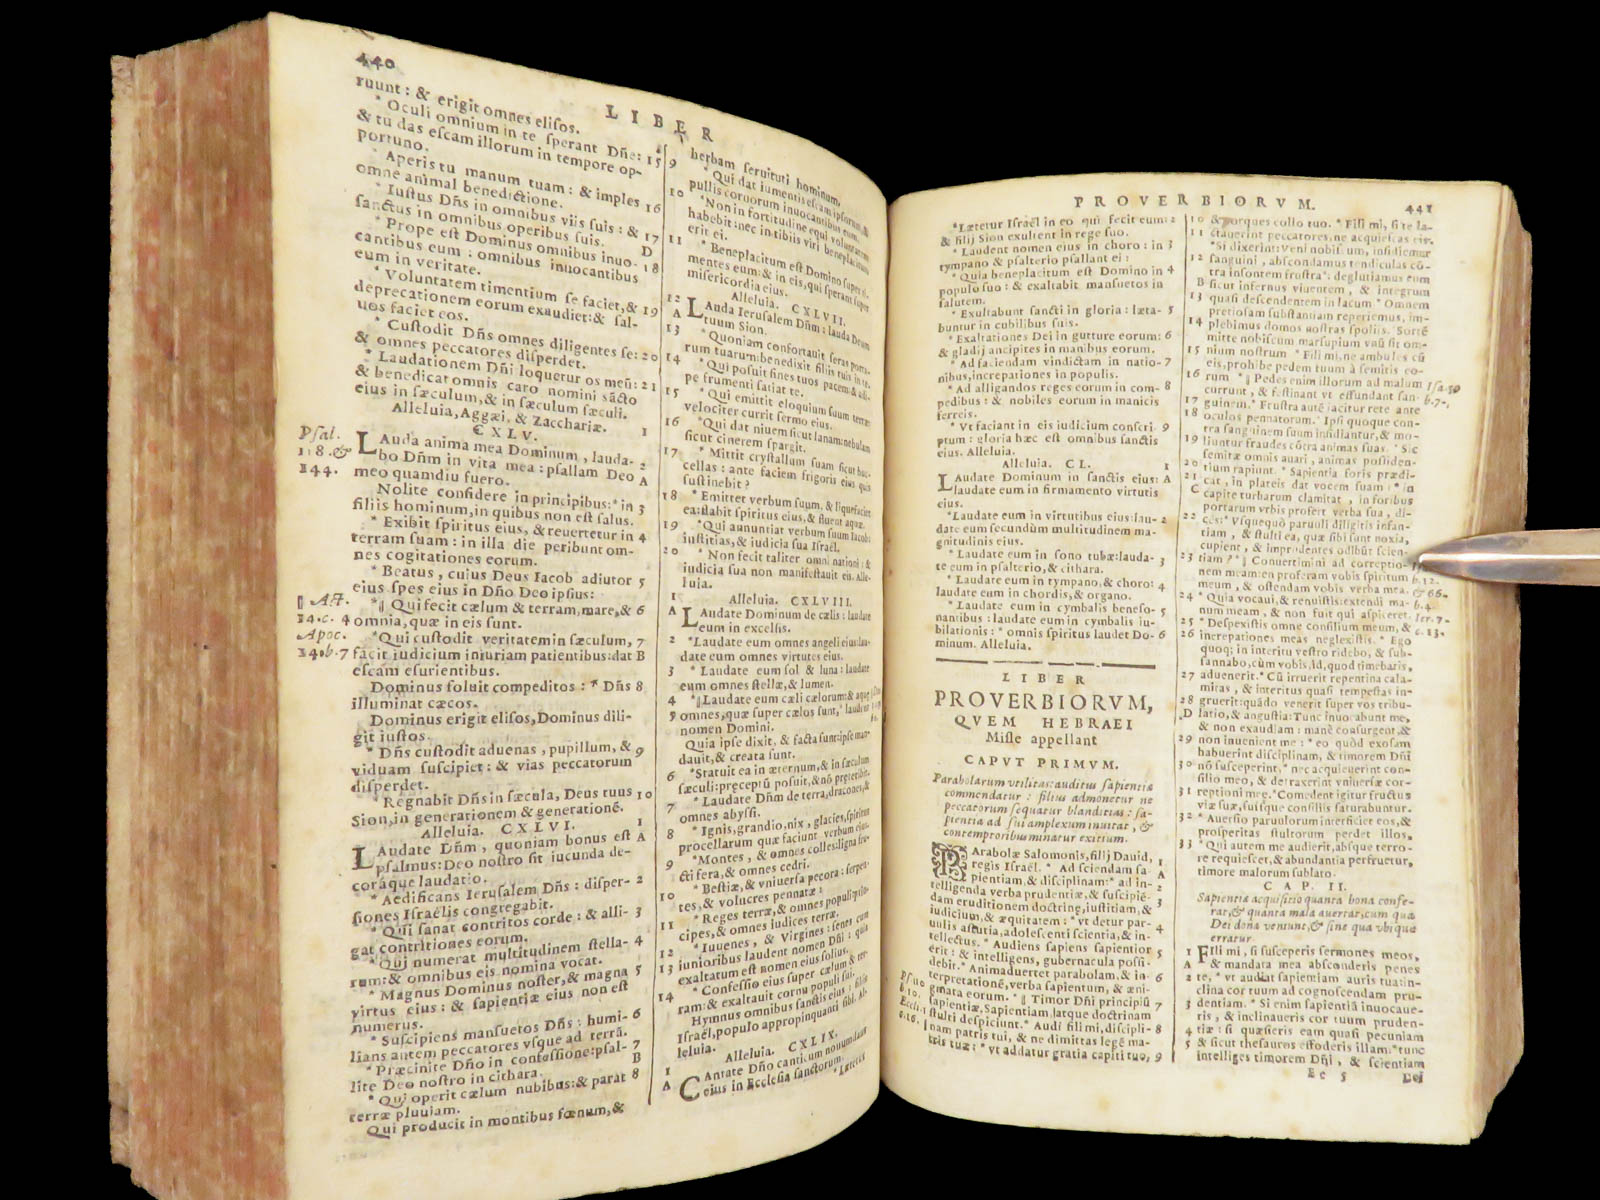 440
LIBER
ruunt: & erigit omnes elisos.
* Oculi omnium in te sperant Dñe: 15
& tu das escam illorum in tempore op-
portuno.
* Aperis tu manum tuam: & imples 16
omne animal benedictione.
* Iustus Dñs in omnibus viis suis: & 17
sanctus in omnibus operibus suis. D
* Prope est Dominus omnibus inuo- 18
cantibus eum: omnibus inuocantibus
eum in veritate.
* Voluntatem timentium se faciet, & 19
deprecationem eorum exaudiet: & sal-
uos faciet eos.
* Custodit Dñs omnes diligentes se: 20
& omnes peccatores disperdet.
* Laudationem Dñi loquetur os meũ: 21
& benedicat omnis caro nomini sãcto
eius in sæculum, & in sæculum sæculi.
Alleluia, Aggæi, & Zachariæ. 1
CXLV.
Psal.
118. &
144.
Lauda anima mea Dominum, lauda- 2
bo Dñm in vita mea: psallam Deo A
meo quamdiu fuero.
Nolite confidere in principibus: * in 3
filiis hominum, in quibus non est salus.
* Exibit spiritus eius, & reuertetur in 4
terram suam: in illa die peribunt om-
nes cogitationes eorum.
* Beatus, cuius Deus Iacob adiutor 5
eius spes eius in Dño Deo ipsius:
‖ Act.
14. c. 4
Apoc.
14. b. 7
*‖ Qui fecit cælum & terram, mare, & 6
omnia, quæ in eis sunt.
* Qui custodit veritatem in sæculum, 7
facit iudicium iniuriam patientibus: dat B
escam esurientibus.
Dominus soluit compeditos: * Dñs 8
illuminat cæcos.
Dominus erigit elisos, Dominus dili-
git iustos.
* Dñs custodit aduenas, pupillum, & 9
viduam suscipiet: & vias peccatorum
disperdet.
* Regnabit Dñs in sæcula, Deus tuus 10
Sion, in generationem & generationẽ.
Alleluia. CXLVI. 1
Laudate Dñm, quoniam bonus est A
psalmus: Deo nostro sit iucunda de-
coráque laudatio.
* Aedificans Ierusalem Dñs: disper- 2
siones Israëlis congregabit.
* Qui sanat contritos corde: & alli- 3
gat contritiones eorum.
* Qui numerat multitudinem stella- 4
rum: & omnibus eis nomina vocat.
* Magnus Dominus noster, & magna 5
virtus eius: & sapientiæ eius non est
numerus.
* Suscipiens mansuetos Dñs: humi- 6
lians autem peccatores vsque ad terrã.
* Præcinite Dño in confessione: psal- 7
lite Deo nostro in cithara. B
* Qui operit cælum nubibus: & parat 8
terræ pluuiam.
Qui producit in montibus fœnum, &
herbam seruituti hominum.
9 * Qui dat iumentis escam ipsorum, &
pullis coruorum inuocantibus eum.
10 * Non in fortitudine equi voluntatem
habebit: nec in tibiis viri beneplacitum
erit ei.
11 * Beneplacitum est Domino super ti-
mentes eum: & in eis, qui sperant super
misericordia eius.
Alleluia. CXLVII.
12 Lauda Ierusalem Dñm: lauda Deum
A tuum Sion.
13 * Quoniam confortauit seras porta-
rum tuarum: benedixit filiis tuis in te.
14 * Qui posuit fines tuos pacem: & adi-
pe frumenti satiat te.
15 * Qui emittit eloquium suum terræ:
velociter currit sermo eius.
16 * Qui dat niuem sicut lanam: nebulam
sicut cinerem spargit.
17 * Mittit crystallum suam sicut buc-
cellas: ante faciem frigoris eius quis
sustinebit?
18 * Emittet verbum suum, & liquefaciet
ea: flabit spiritus eius, & fluent aquæ.
19 * Qui annuntiat verbum suum Iacob:
iustitias, & iudicia sua Israël.
20 * Non fecit taliter omni nationi: &
iudicia sua non manifestauit eis. Alle-
luia.
1 Alleluia. CXLVIII.
A Laudate Dominum de cælis: laudate
eum in excelsis.
2 * Laudate eum omnes angeli eius: lau-
date eum omnes virtutes eius.
3 * Laudate eum sol & luna: laudate
eum omnes stellæ, & lumen.
4 *‖ Laudate eum cæli cælorum: & aquæ
5 omnes, quæ super cælos sunt, * laudent
nomen Domini.
Quia ipse dixit, & facta sunt: ipse man-
dauit, & creata sunt.
6 * Statuit ea in æternum, & in sæculum
sæculi: præceptũ posuit, & nõ præteribit.
7 * Laudate Dñm de terra, dracones, &
omnes abyssi.
8 * Ignis, grandio, nix, glacies, spiritus
procellarum quæ faciunt verbum eius.
9 * Montes, & omnes colles: ligna fru-
ctifera, & omnes cedri.
10 * Bestiæ, & vniuersa pecora: serpen-
tes, & volucres pennatæ:
11 * Reges terræ, & omnes populi: prin-
cipes, & omnes iudices terræ.
12 * Iuuenes, & Virgines: senes cum
13 iunioribus laudent nomen Dñi: quia
exaltatum est nomen eius solius.
14 * Confessio eius super cælum & ter-
ram: & exaltauit cornu populi sui.
Hymnus omnibus sanctis eius: filiis
Israël, populo appropinquanti sibi. Al-
leluia.
1 Alleluia. CXLIX.
A Cantate Dño canticum nouum: laus
eius in Ecclesia sanctorum.
* Lætetur
PROVERBIORVM.
441
* Lætetur Israël in eo qui fecit eum: 2
& filij Sion exultent in rege suo.
* Laudent nomen eius in choro: in 3
tympano & psalterio psallant ei:
* Quia beneplacitum est Domino in 4
populo suo: & exaltabit mansuetos in
salutem.
* Exultabunt sancti in gloria: læta- 5
buntur in cubilibus suis.
* Exaltationes Dei in gutture eorum: 6
& gladij ancipites in manibus eorum.
* Ad faciendam vindictam in natio- 7
nibus, increpationes in populis.
* Ad alligandos reges eorum in com- 8
pedibus: & nobiles eorum in manicis
ferreis.
* Vt faciant in eis iudicium conscri- 9
ptum: gloria hæc est omnibus sanctis
eius. Alleluia.
Alleluia. CL. 1
Laudate Dominum in sanctis eius: A
laudate eum in firmamento virtutis
eius.
* Laudate eum in virtutibus eius: lau- 2
date eum secundùm multitudinem ma-
gnitudinis eius.
* Laudate eum in sono tubæ: lauda- 3
te eum in psalterio, & cithara.
* Laudate eum in tympano, & choro: 4
laudate eum in chordis, & organo.
* Laudate eum in cymbalis beneso- 5
nantibus: laudate eum in cymbalis iu-
bilationis: * omnis spiritus laudet Do- 6
minum. Alleluia.
LIBER
PROVERBIORVM,
QVEM HEBRAEI
Misle appellant
CAPVT PRIMVM.
Parabolarum vtilitas: auditus sapientia
commendatur: filius admonetur ne
peccatorum sequatur blanditias: sa-
pientia ad sui amplexum inuitat, &
contemptoribus minatur exitium.
Parabolæ Salomonis, filij Dauid, 1
regis Israël. * Ad sciendam sa- A
pientiam, & disciplinam: * ad in- 2
telligenda verba prudentiæ, & suscipiẽ- 3
dam eruditionem doctrinæ, iustitiam, &
iudicium, & æquitatem: * vt detur par- 4
uulis astutia, adolescenti scientia, & in-
tellectus. * Audiens sapiens sapientior 5
erit: & intelligens, gubernacula possi-
debit. * Animaduertet parabolam, & in- 6
terpretationẽ, verba sapientum, & æni-
gmata eorum. *‖ Timor Dñi principiũ 7
sapientiæ. Sapientiam, atque doctrinam
stulti despiciunt. * Audi fili mi, discipli- 8
nam patris tui, & ne dimittas legẽ ma-
tris tuæ: * vt addatur gratia capiti tuo, 9
10 & torques collo tuo. * Fili mi, si te la-
11 ctauerint peccatores, ne acquiescas eis.
* Si dixerint: Veni nobiscum, insidiemur
12 sanguini, abscondamus tendiculas cõ-
tra insontem frustra: * deglutiamus eum
B sicut infernus viuentem, & integrum
13 quasi descendentem in lacum * Omnem
pretiosam substantiam reperiemus, im-
14 plebimus domos nostras spoliis. * Sortẽ
mitte nobiscum marsupium vnũ sit om-
15 nium nostrum * Fili mi, ne ambules cũ
eis, prohibe pedem tuum à semitis eo-
16 rum *‖ Pedes enim illorum ad malum Isa. 59
currunt, & festinant vt effundant san- b. 7.
17 guinem. * Frustra autẽ iacitur rete ante
18 oculos pennatorum. * Ipsi quoque con-
tra sanguinem suum insidiantur, & mo-
19 liuntur fraudes cõtra animas suas. * Sic
semitæ omnis auari, animas possiden-
20 tium rapiunt. * Sapientia foris prædi-
21 cat, in plateis dat vocem suam: * in
C capite turbarum clamitat, in foribus
portarum vrbis profert verba sua, di-
22 cens: * Vsquequò paruuli diligitis infan-
tiam, & stulti ea, quæ sibi sunt noxia,
cupient, & imprudentes odibũt scien-
23 tiam? *‖ Conuertimini ad correptio-
nem meam: en proferam vobis spiritum b. 12.
meum, & ostendam vobis verba mea. & 66.
24 * Quia vocaui, & renuistis: extendi ma- b. 4
num meam, & non fuit qui aspiceret. Ier. 7.
25 * Despexistis omne consilium meum, & c. 13.
26 increpationes meas neglexistis. * Ego
quoq; in interitu vestro ridebo, & sub-
sannabo, cùm vobis, id, quod timebatis,
27 aduenerit. * Cũ irruerit repentina cala-
mitas, & interitus quasi tempestas in-
28 gruerit: quãdo venerit super vos tribu-
D latio, & angustia: Tunc inuocabunt me,
& non exaudiam: manè consurgent, &
29 non inuenient me: * eo quòd exosam
habuerint disciplinam, & timorem Dñi
30 nõ susceperint, * nec acquieuerint con-
silio meo, & detraxerint vniuersæ cor-
31 reptioni meæ. * Comedent igitur fructus
viæ suæ, suisque consiliis saturabuntur.
32 * Auersio paruulorum interficiet eos, &
prosperitas stultorum perdet illos.
33 * Qui autem me audierit, absque terro-
re requiescet, & abundantia perfruetur,
timore malorum sublato.
CAP. II.
Sapientia acquisitio quanta bona confe-
rat, & quanta mala auertat, cum qua
Dei dona veniunt, & sine qua vbique
erratur.
1 Fili mi, si susceperis sermones meos,
A & mandata mea absconderis penes
2 te, * vt audiat sapientiam auris tua: in-
clina cor tuum ad cognoscendam pru-
3 dentiam. * Si enim sapientiã inuocaue-
ris, & inclinaueris cor tuum pruden-
4 tiæ: si quæsieris eam quasi pecuniam
5 & sicut thesauros effoderis illam: * tunc
intelliges timorem Dñi, & scientiam
Ee 5
Dei